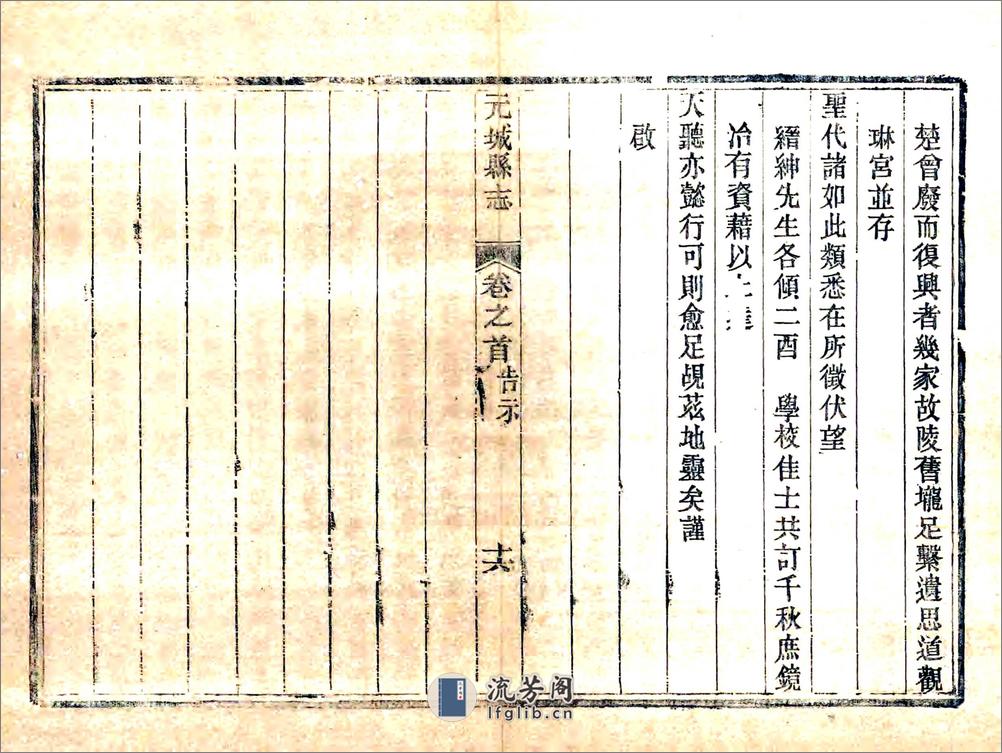 楚曾廢而復興者幾家故陵舊壠足繫遺思道觀
琳宮並存
聖代諸如此類悉在所徵伏望
縉紳先生各傾二酉　學校佳士共訂千秋庶鏡
冶有資藉以上達
天聽亦懿行可則愈足覘茲地靈矣謹
啟
元城縣志
卷之首
告示
十六
流芳阁
lfglib.cn